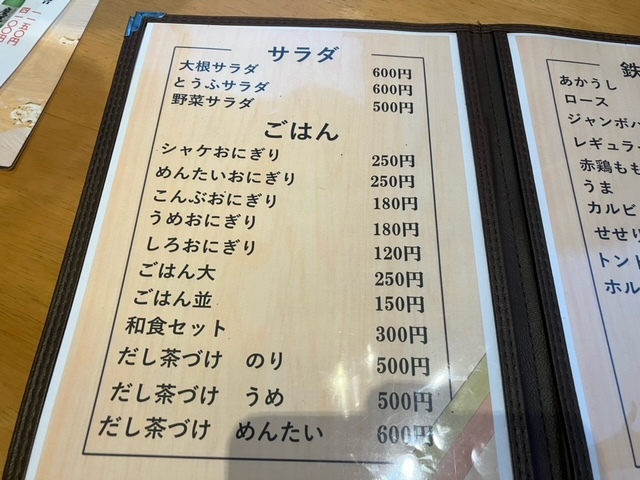 サラダ
大根サラダ 600円
とうふサラダ 600円
野菜サラダ 500円
ごはん
シャケおにぎり 250円
めんたいおにぎり 250円
こんぶおにぎり 180円
うめおにぎり 180円
しろおにぎり 120円
ごはん大 250円
ごはん並 150円
和食セット 300円
だし茶づけ のり 500円
だし茶づけ うめ 500円
だし茶づけ めんたい 600円
鉄
あかうし
ロース
ジャンボハ
レギュラー
赤鶏もも
うま
カルビ
せせり
トント
ホル